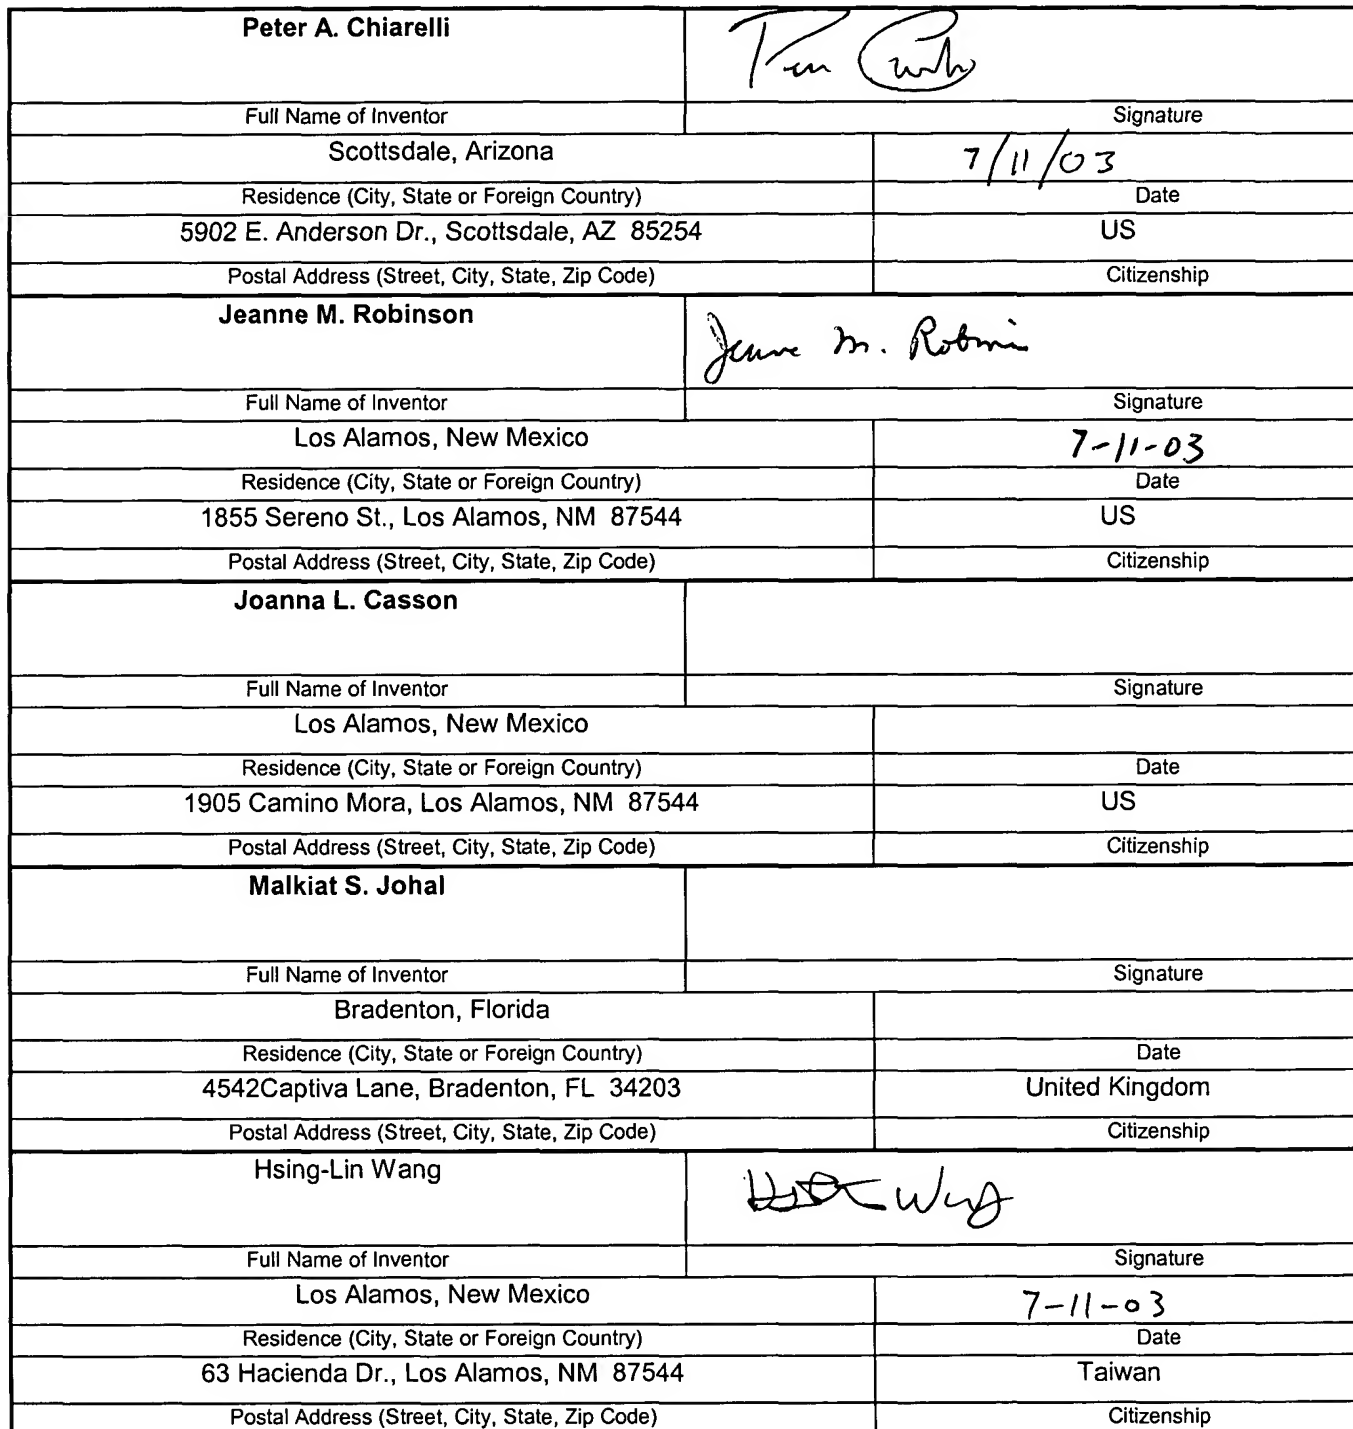 Peter A. Chiarelli
Full Name of Inventor Signature
Scottsdale, Arizona 7/11/03
Residence (City, State or Foreign Country) Date
5902 E. Anderson Dr., Scottsdale, AZ 85254 US
Postal Address (Street, City, State, Zip Code) Citizenship
Jeanne M. Robinson Jeanne M. Robinson
Full Name of Inventor Signature
Los Alamos, New Mexico 7-11-03
Residence (City, State or Foreign Country) Date
1855 Sereno St., Los Alamos, NM 87544 US
Postal Address (Street, City, State, Zip Code) Citizenship
Joanna L. Casson
Full Name of Inventor Signature
Los Alamos, New Mexico
Residence (City, State or Foreign Country) Date
1905 Camino Mora, Los Alamos, NM 87544 US
Postal Address (Street, City, State, Zip Code) Citizenship
Malkiat S. Johal
Full Name of Inventor Signature
Bradenton, Florida
Residence (City, State or Foreign Country) Date
4542Captiva Lane, Bradenton, FL 34203 United Kingdom
Postal Address (Street, City, State, Zip Code) Citizenship
Hsing-Lin Wang Wang
Full Name of Inventor Signature
Los Alamos, New Mexico 7-11-03
Residence (City, State or Foreign Country) Date
63 Hacienda Dr., Los Alamos, NM 87544 Taiwan
Postal Address (Street, City, State, Zip Code) Citizenship